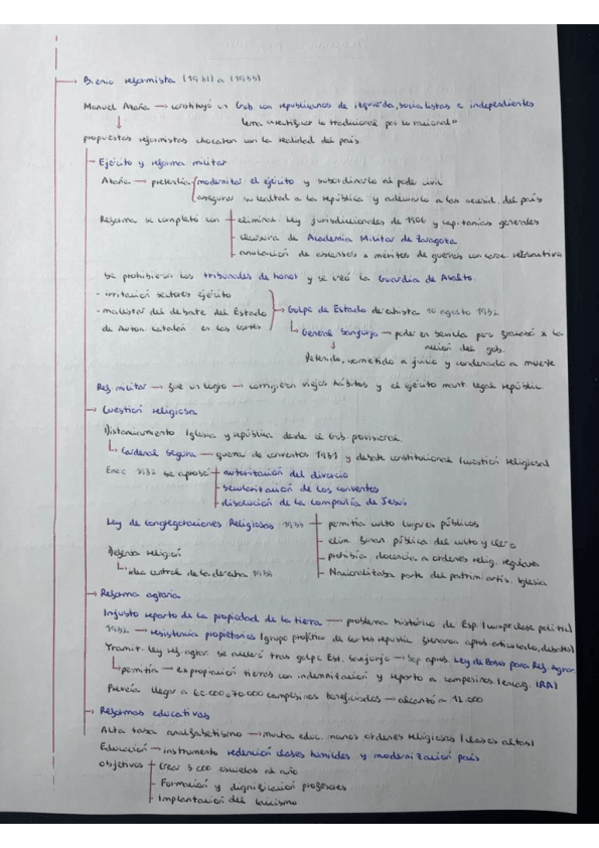 Bienio reformista (1931) a (1933)
Manuel Azaña → constituyó un Gob. con republicanos de izquierda, socialistas e independientes
lema "rectificar lo tradicional por lo racional"
propuestas reformistas chocaron con la realidad del país
Ejército y reforma militar
Azaña → pretendía modernizar el ejército y subordinarlo al poder civil
asegurar su lealtad a la república y adecuarlo a las necesid. del país
Reforma se completó con eliminac. Ley jurisdicciones de 1906 y capitanías generales
clausura de Academia Militar de Zaragoza
anulación de ascensos x méritos de guerra con carac. retroactivo
Se prohibieron los tribunales de honor y se creó la Guardia de Asalto.
- irritación sectores ejército
- malestar del debate del Estado
de Auton. Catalán en las Cortes
Golpe de Estado derechista 10 agosto 1932
General Sanjurjo → poder en Sevilla pero fracasó x la
acción del gob.
Detenido, sometido a juicio y condenado a muerte
Ref. militar → fue un logro → corrigieron viejos hábitos y el ejército mant. legal. república
Cuestión religiosa
Distanciamiento Iglesia y república desde el Gob. provisional
Cardenal Segura → quema de conventos 1931 y debate constitucional (cuestión religiosa)
Enero 1932 se aprobó autorización del divorcio
secularización de los conventos
disolución de la compañía de Jesús
Ley de Congregaciones Religiosas 1933 permitía culto lugares públicos
elim. financ. pública del culto y clero
prohibía docencia a órdenes relig. regulares
Nacionalizaba parte del patrim. artís. Iglesia
Defensa religión
idea central de la derecha 1933
Reforma agraria
Injusto reparto de la propiedad de la tierra → problema histórico de Esp.
1932 → resistencia propietarios
Tramit. ley ref. agrar. se aceleró tras golpe Est. Sanjurjo → Sep aprob. Ley de Bases para Ref. Agrar.
permitía → expropiación tierras con indemnización y reparto a campesinos (encarg. IRA)
Preveía llegar a 60.000 o 70.000 campesinos beneficiados → alcanzó ≈ 12.000
Reformas educativas
Alta tasa analfabetismo → mucha educ. manos órdenes religiosas (clases altas)
Educación → instrumento redención clases humildes y modernización país
objetivos Crear 5.000 escuelas al año
Formación y dignificación profesores
Implantación del laicismo